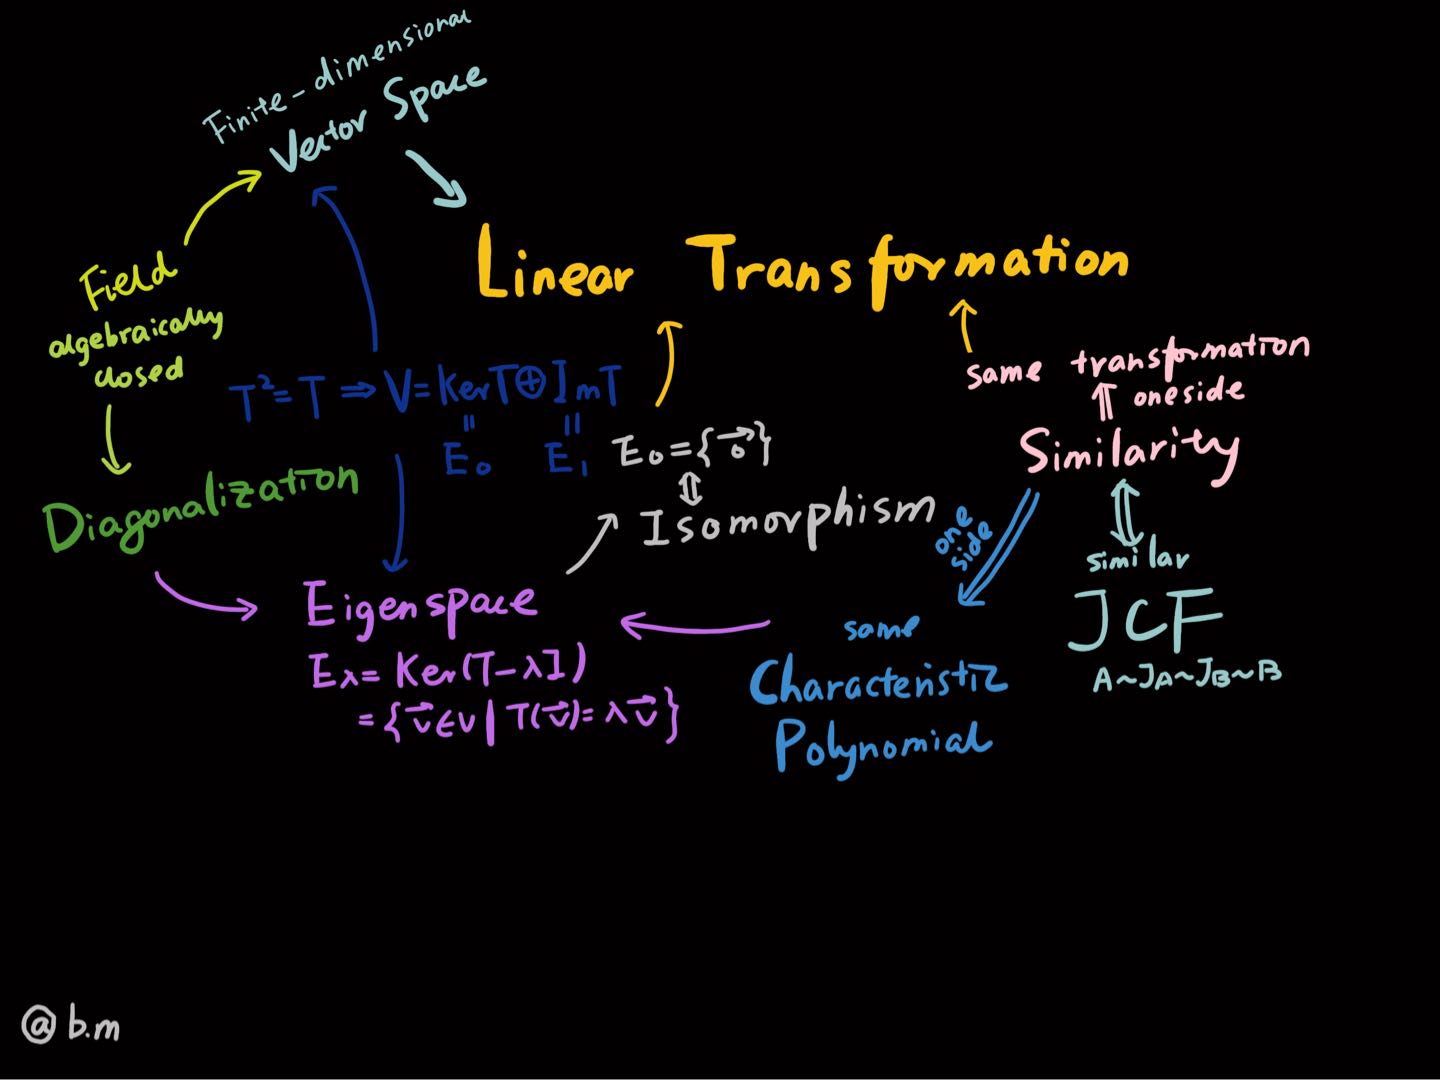 Finite-dimensional
Vector Space
Linear Transformation
Field
algebraically
closed
T²=T ⇒ V=KerT⊕ImT
=
=
E₀
E₁
Diagonalization
E₀={0⃗}
⇕
Isomorphism
same transformation
⇑ one side
Similarity
one
side
⇕
similar
JCF
A~J_A~J_B~B
Eigenspace
E_λ=Ker(T-λI)
={v⃗∈V|T(v⃗)=λv⃗}
same
Characteristic
Polynomial
@b.m